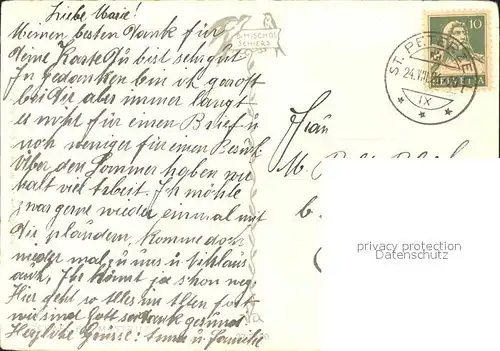 Liebe Marie!
Meinen besten Dank für
deine Karte Du bist sehr gut
In gedanken bin ich ja oft
bei Dir aber immer langt
es nicht für einen Brief u
noch weniger für einen Besuch
Über den Sommer haben wir
halt viel Arbeit. Ich möchte
zwar gerne wieder einmal mit
Dir plaudern, komme doch
wieder mal, u uns u
auch, Ihr könnt ja schon weg,
Hier geht so alles im alten fort
wir sind Gott sei Dank gesund
Herzliche Grüsse! Anna u. Familie
MISCHOL
SCHIERS
ST. PETER
24.VIII
IX
10
HELVETIA
Frau
M.
privacy protection
Datenschutz